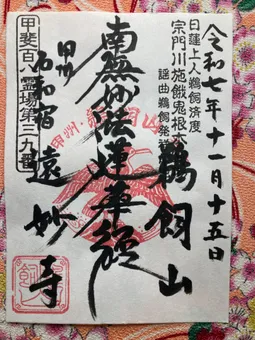 令和七年十一月十五日
日蓮上人鵜飼済度
宗門川施餓鬼根本
謡曲鵜飼発祥
鵜飼山
南無妙法蓮華経
甲州
石和宿
遠妙寺
甲斐百八霊場第三九番